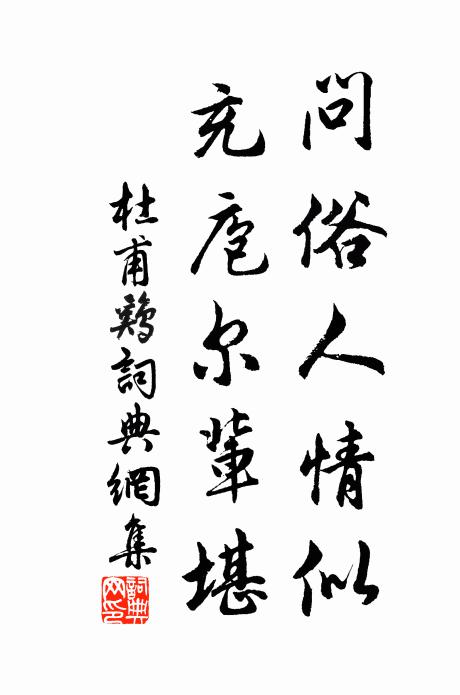 問俗人情似
充庖尔輩堪
杜甫鷄詞典網集
詞典
网印